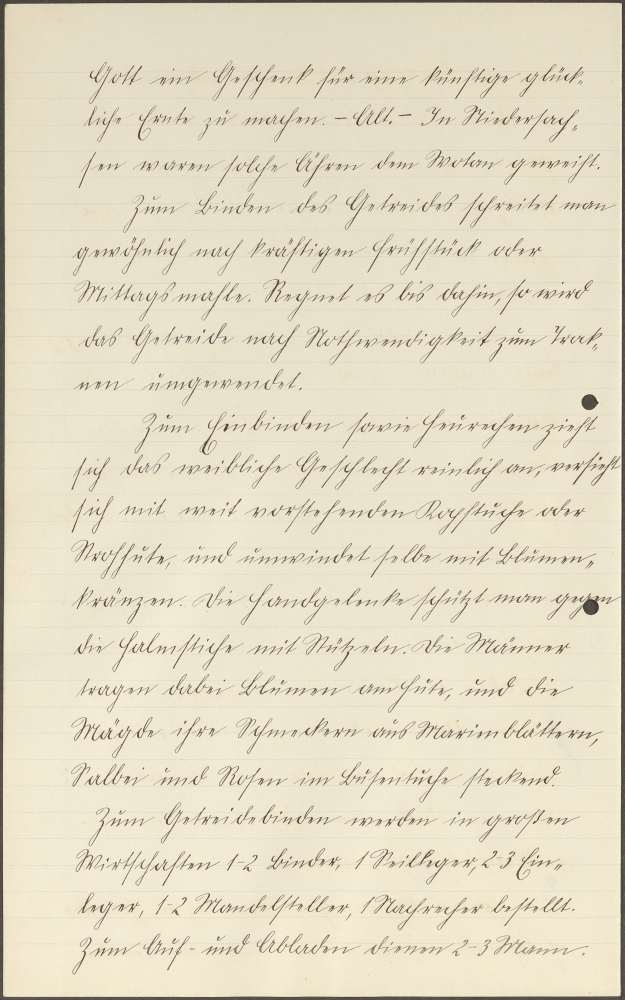 Gott ein Geschenk für eine künftige glück-
liche Ernte zu machen. – Alt. – In Niedersach-
sen waren solche Ähren dem Wotan geweiht.
Zum Binden des Getreides schreitet man
gewöhnlich nach kräftigen Frühstück oder
Mittagsmahle. Regnet es bis dahin, so wird
das Getreide nach Nothwendigkeit zum Trock-
nen umgewendet.
Zum Einbinden sowie Heurechen zieht
sich das weibliche Geschlecht reinlich an, versieht
sich mit weit vorstehenden Kopftuche oder
Strohhute, und umwindet selbe mit Blumen-
kränzen. Die Handgelenke schützt man gegen
die Halmstiche mit Stützeln. Die Männer
tragen dabei Blumen am Hute, und die
Mägde ihre Schmeckern aus Marienblättern,
Salbei und Rosen im Busentuche steckend.
Zum Getreidebinden werden in großen
Wirtschaften 1-2 Binder, 1 Seilleger, 2-3 Ein-
leger, 1-2 Mandelsteller, 1 Nachrecher bestellt.
Zum Auf- und Abladen dienen 2-3 Mann.